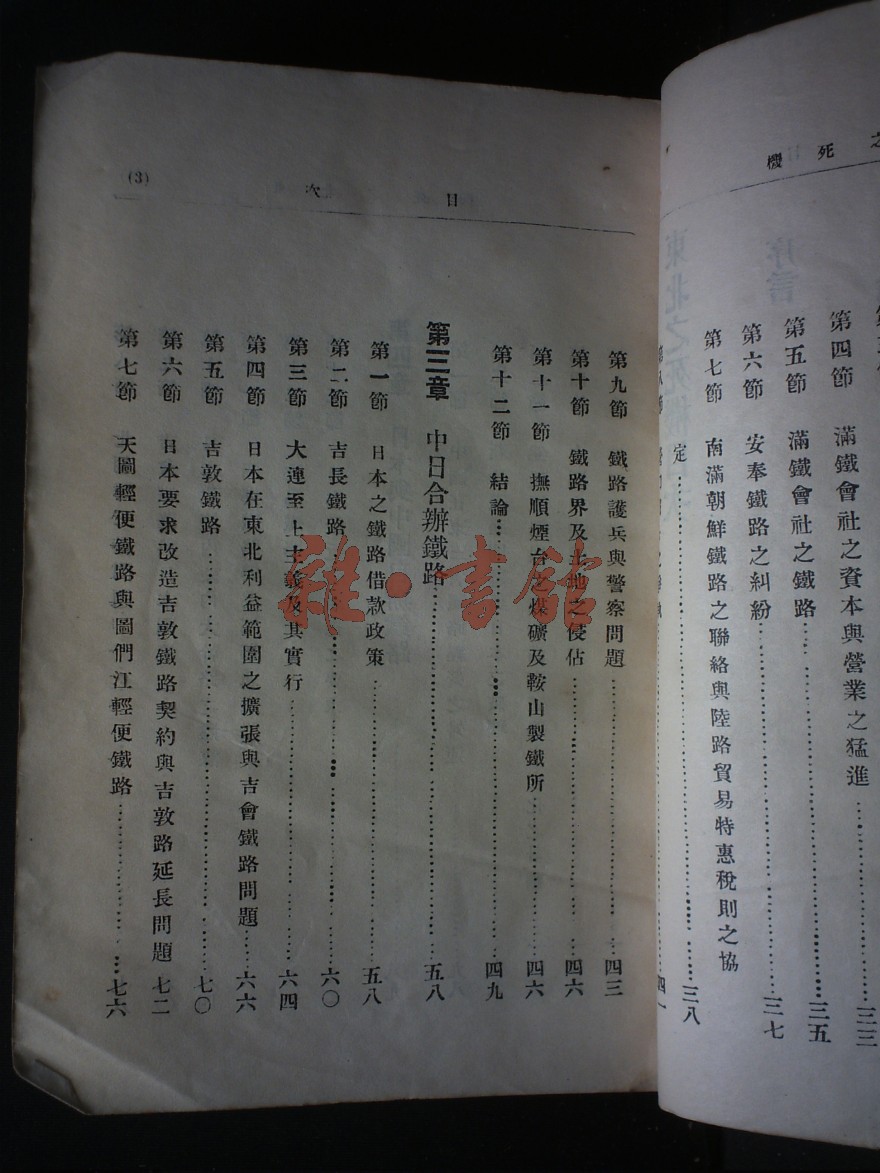 之死機
第四節　滿鐵會社之資本與營業之猛進……三三
第五節　滿鐵會社之鐵路……三五
第六節　安奉鐵路之糾紛……三七
第七節　南滿朝鮮鐵路之聯絡與陸路貿易特惠稅則之協
定……三八
第八節
目次
(3)
第九節　鐵路護兵與警察問題……四三
第十節　鐵路界及土地之侵佔……四六
第十一節　撫順煙台之煤礦及鞍山製鐵所……四六
第十二節　結論……四九
第三章　中日合辦鐵路……五八
第一節　日本之鐵路借款政策……五八
第二節　吉長鐵路……六〇
第三節　大連至上主義及其實行……六四
第四節　日本在東北利益範圍之擴張與吉會鐵路問題……六六
第五節　吉敦鐵路……七〇
第六節　日本要求改造吉敦鐵路契約與吉敦路延長問題　七二
第七節　天圖輕便鐵路與圖們江輕便鐵路……七六
雜·書館
序言